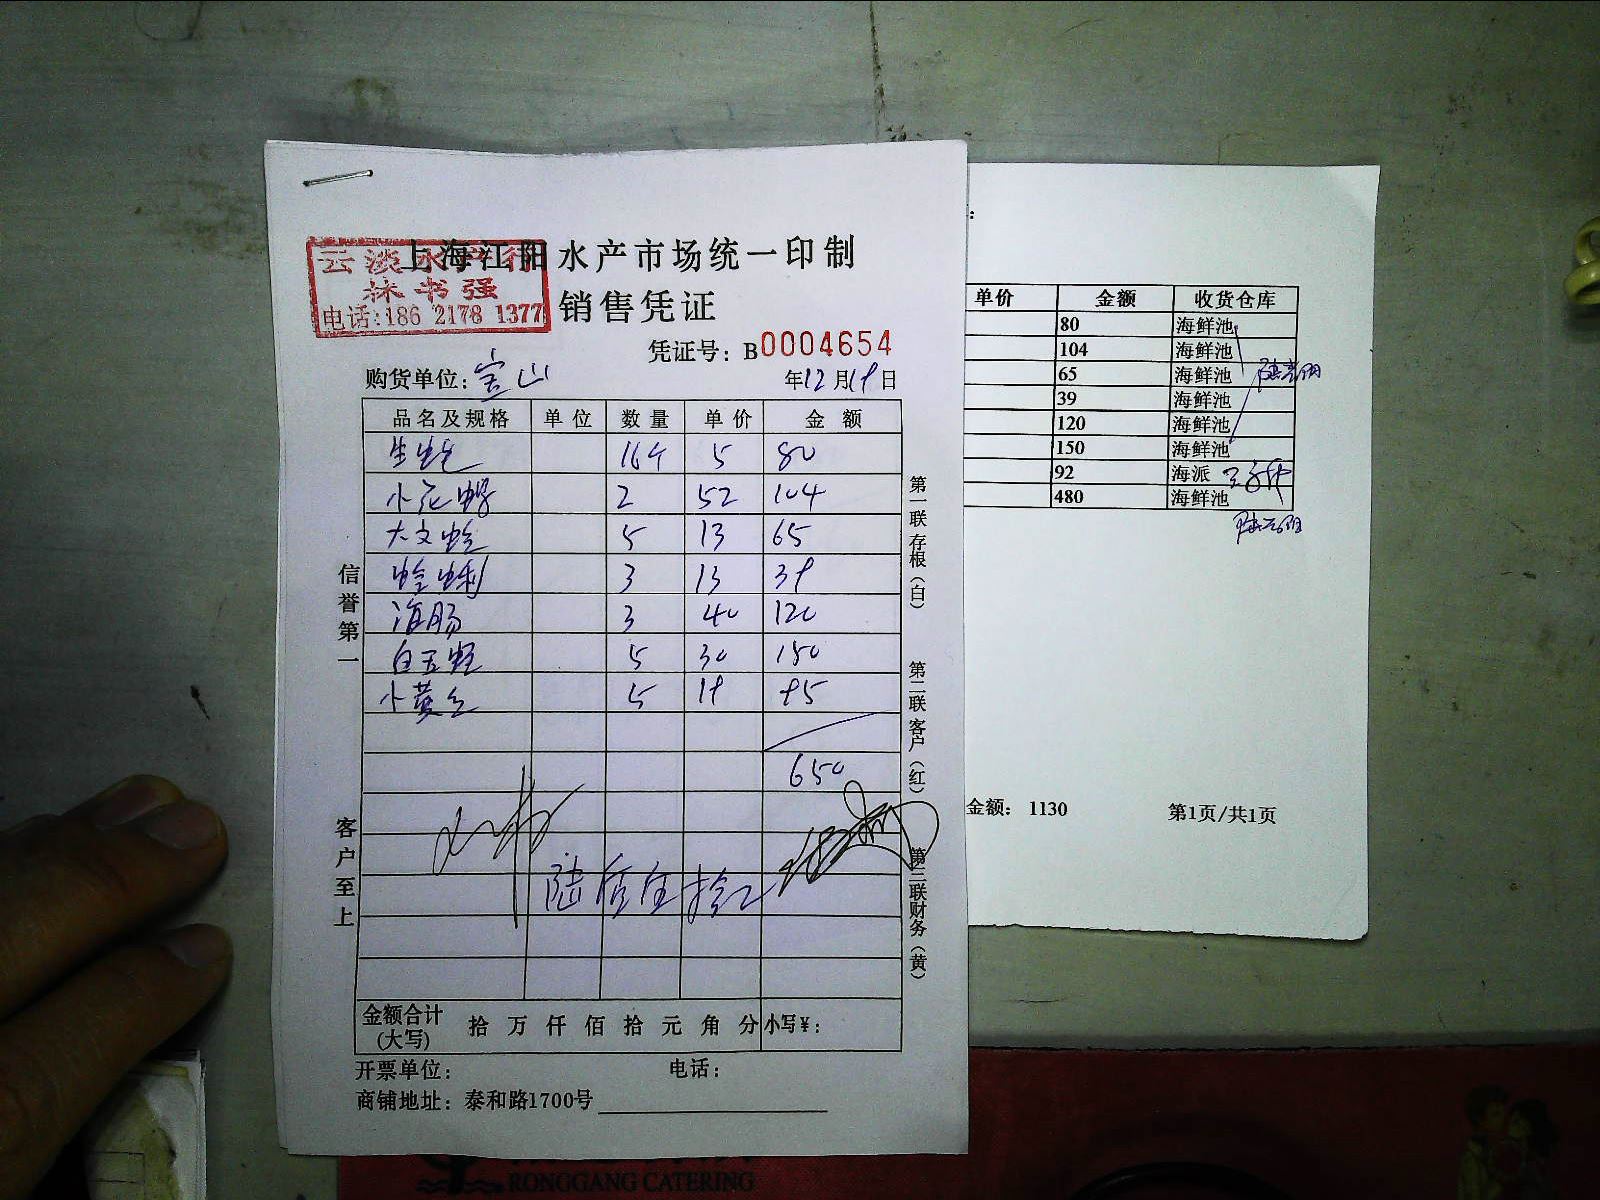 上海江阳水产市场统一印制
云淡水产行
林书强
电话:186 2178 1377
销售凭证
凭证号: B0004654
购货单位: 宝山
年12月19日
品名及规格 单位 数量 单价 金额
生蚝 16个 5 80
小花螺 2 52 104
大文蛤 5 13 65
蛤蜊 3 13 39
海肠 3 40 120
白玉蛏 5 30 150
小黄 5 19 95
650
陆佰伍拾
金额合计(大写) 拾 万 仟 佰 拾 元 角 分 小写¥:
开票单位: 电话:
商铺地址: 泰和路1700号
信誉第一
客户至上
第一联存根(白)
第二联客户(红)
第三联财务(黄)
单价 金额 收货仓库
80 海鲜池
104 海鲜池
65 海鲜池
39 海鲜池
120 海鲜池
150 海鲜池
92 海派
480 海鲜池
金额: 1130
第1页/共1页
RONGGANG CATERING